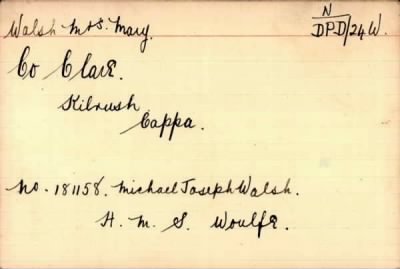 Walsh Mrs. Mary.
N
DPD/24 W.
Co Clare.
Kilrush
Cappa.
No. 181158. Michael Joseph Walsh.
H. M. S. Woulfe.